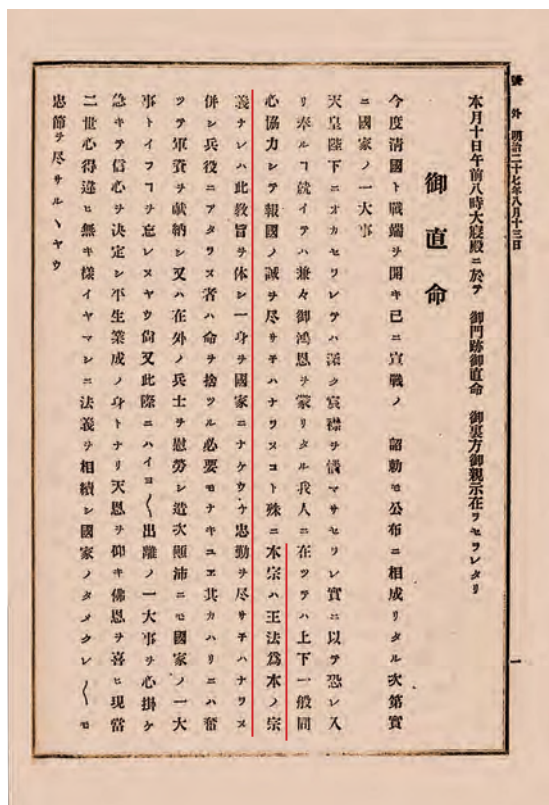 號外 明治二十七年八月十三日
一
本月十日午前八時大寢殿ニ於テ 御門跡御直命 御裏方御親示在ラセラレタリ
御直命
今度清國ト戰端ヲ開キ已ニ宣戰ノ 詔勅モ公布ニ相成リタル次第實
ニ國家ノ一大事
天皇陛下ニオカセラレテハ深ク宸襟ヲ悩マサセラレ實ニ以テ恐レ入
リ奉ルヿ就イテハ兼々御鴻恩ヲ蒙リタル我人ニ在ツテハ上下一般同
心協力シテ報國ノ誠ヲ尽サ子ハナラヌコト殊ニ本宗ハ王法爲本ノ宗
義ナレハ此教旨ヲ体シ一身ヲ國家ニナケウケ忠勤ヲ尽サ子ハナラヌ
併シ兵役ニアタラヌ者ハ命ヲ捨ツル必要モナキユヱ其カハリニハ奮
ツテ軍資ヲ献納シ又ハ在外ノ兵士ヲ慰勞シ造次顚沛ニモ國家ノ一大
事トイフヿヲ忘レヌヤウ尙又此際ニハイヨ〱出離ノ一大事ヲ心掛ケ
急キテ信心ヲ決定シ平生業成ノ身トナリ天恩ヲ仰キ佛恩ヲ喜ヒ現當
二世心得違ヒ無キ樣イヤマシニ法義ヲ相續シ國家ノタメクレ〱モ
忠節ヲ尽サルヽヤウ